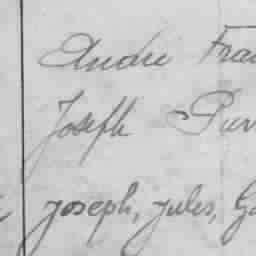 André Fran
Joseph Pier
Joseph, Jules, Ga